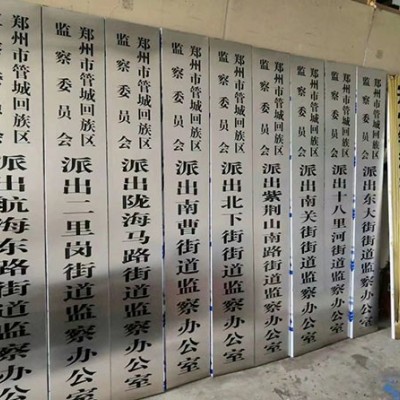 郑州市管城回族区
监察委员会
派出航海东路街道监察办公室
郑州市管城回族区
监察委员会
派出二里岗街道监察办公室
郑州市管城回族区
监察委员会
派出陇海马路街道监察办公室
郑州市管城回族区
监察委员会
派出南曹街道监察办公室
郑州市管城回族区
监察委员会
派出北下街街道监察办公室
郑州市管城回族区
监察委员会
派出紫荆山南路街道监察办公室
郑州市管城回族区
监察委员会
派出南关街道监察办公室
郑州市管城回族区
监察委员会
派出十八里河街道监察办公室
郑州市管城回族区
监察委员会
派出东大街街道监察办公室